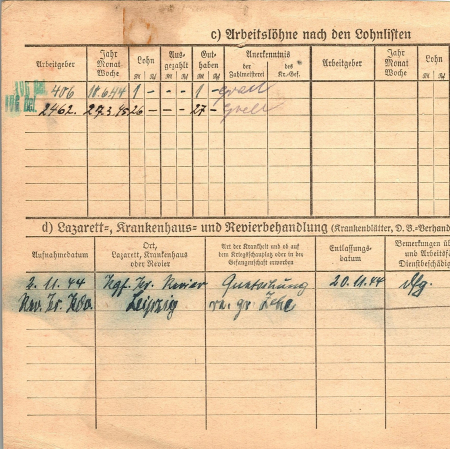 c) Arbeitslöhne nach den Lohnlisten
Arbeitgeber Jahr Monat Woche Lohn Aus- gezahlt Gut- haben Anerkenntnis Arbeitgeber Jahr Monat Woche Lohn
ℛℳ ₰ ℛℳ ₰ ℛℳ ₰ der Zahlmeisterei des Kr.-Gef. ℛℳ ₰
406 18.6.44 1 - - - 1 -
2462. 27.3.45 26 - - - 27 -
d) Lazarett-, Krankenhaus- und Revierbehandlung (Krankenblätter, D. B.-Verhand
Aufnahmedatum Ort, Lazarett, Krankenhaus oder Revier Art der Krankheit und ob auf dem Kriegsschauplatz oder in der Gefangenschaft erworben Entlassungs- datum Bemerkungen üb und Arbeitsf Dienstbeschädig
2.11.44 Kgf. Kr. Revier Quetschung 20.11.44 dfg.
Leipzig re. gr. Zehe